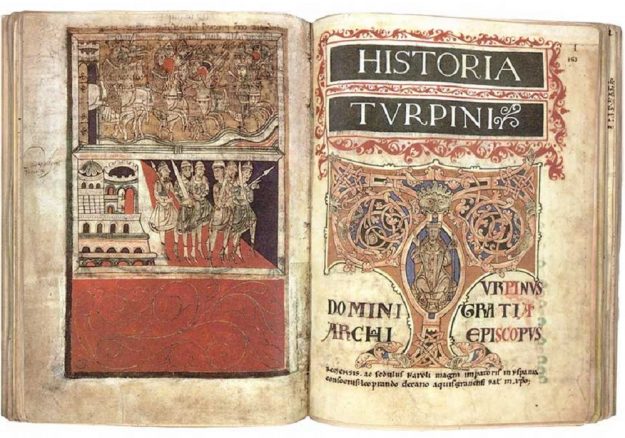 I
HISTORIA
TVRPINI
TVRPINVS
DOMINI GRATIA
ARCHI EPISCOPVS
remensis. ac sedulus karoli magni impatoris in yspania
consocius leoprando decano aquisgranensi sal in xpo;